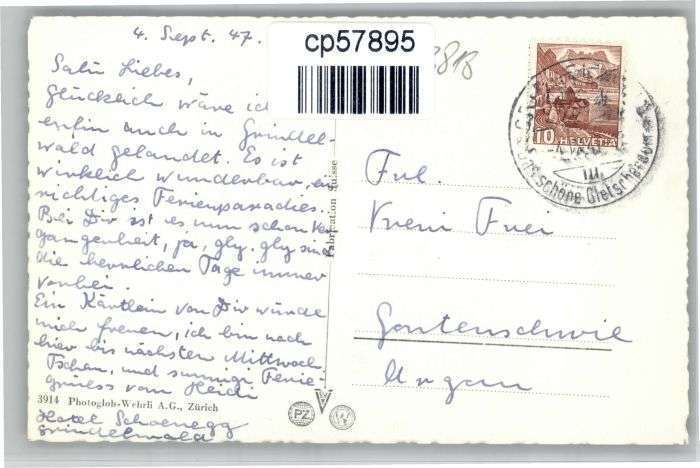 4. Sept. 47.
cp57895
Salü Liebes,
Glücklich wäre ic
enfin auch in Grindel
wald gelandet. Es ist
wirklich wunderbar, ein
richtiges Ferienparadies.
Bei Dir ist es nun schon Ver
gangenheit, ja, gly. gly sind
die herrlichen Tage immer
vorbei.
Ein Kärtlein von Dir würde
mich freuen, ich bin noch
hier bis nächsten Mittwoch.
Tschau, und sunnigi Ferie-
grüess vom Heidi
3914 Photoglob-Wehrli A.G., Zürich
Hotel Schoenegg
Grindelwald
Fabrication suisse
PZ
W
10 HELVETIA
Das schöne Gletscherdorf
Frl.
Vreni Frei
Gontenschwil
Aargau